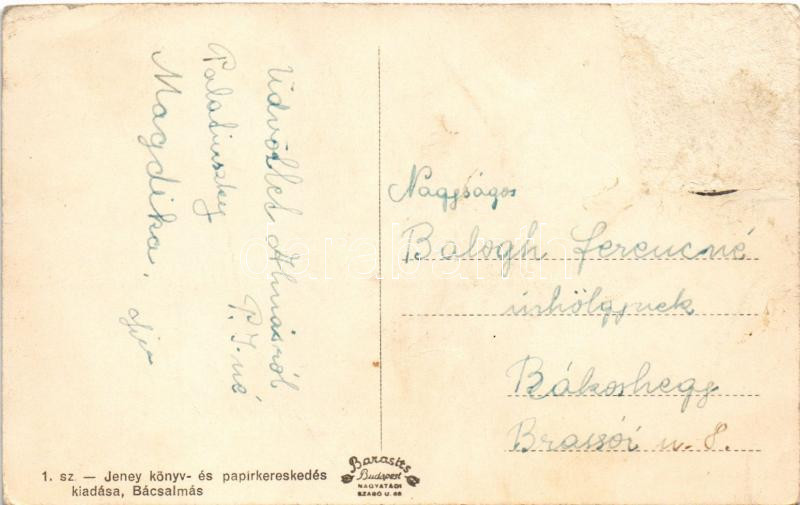 Üdvözlet Almásról
P. I.-né
Palatinszky
Magdika.
Nagyságos
Balogh Ferencné
úrhölgynek
Rákoshegy
Brassói u. 8.
1. sz. — Jeney könyv- és papirkereskedés
kiadása, Bácsalmás
Barasits
Budapest
NAGYATÁDI
SZABÓ U. 46